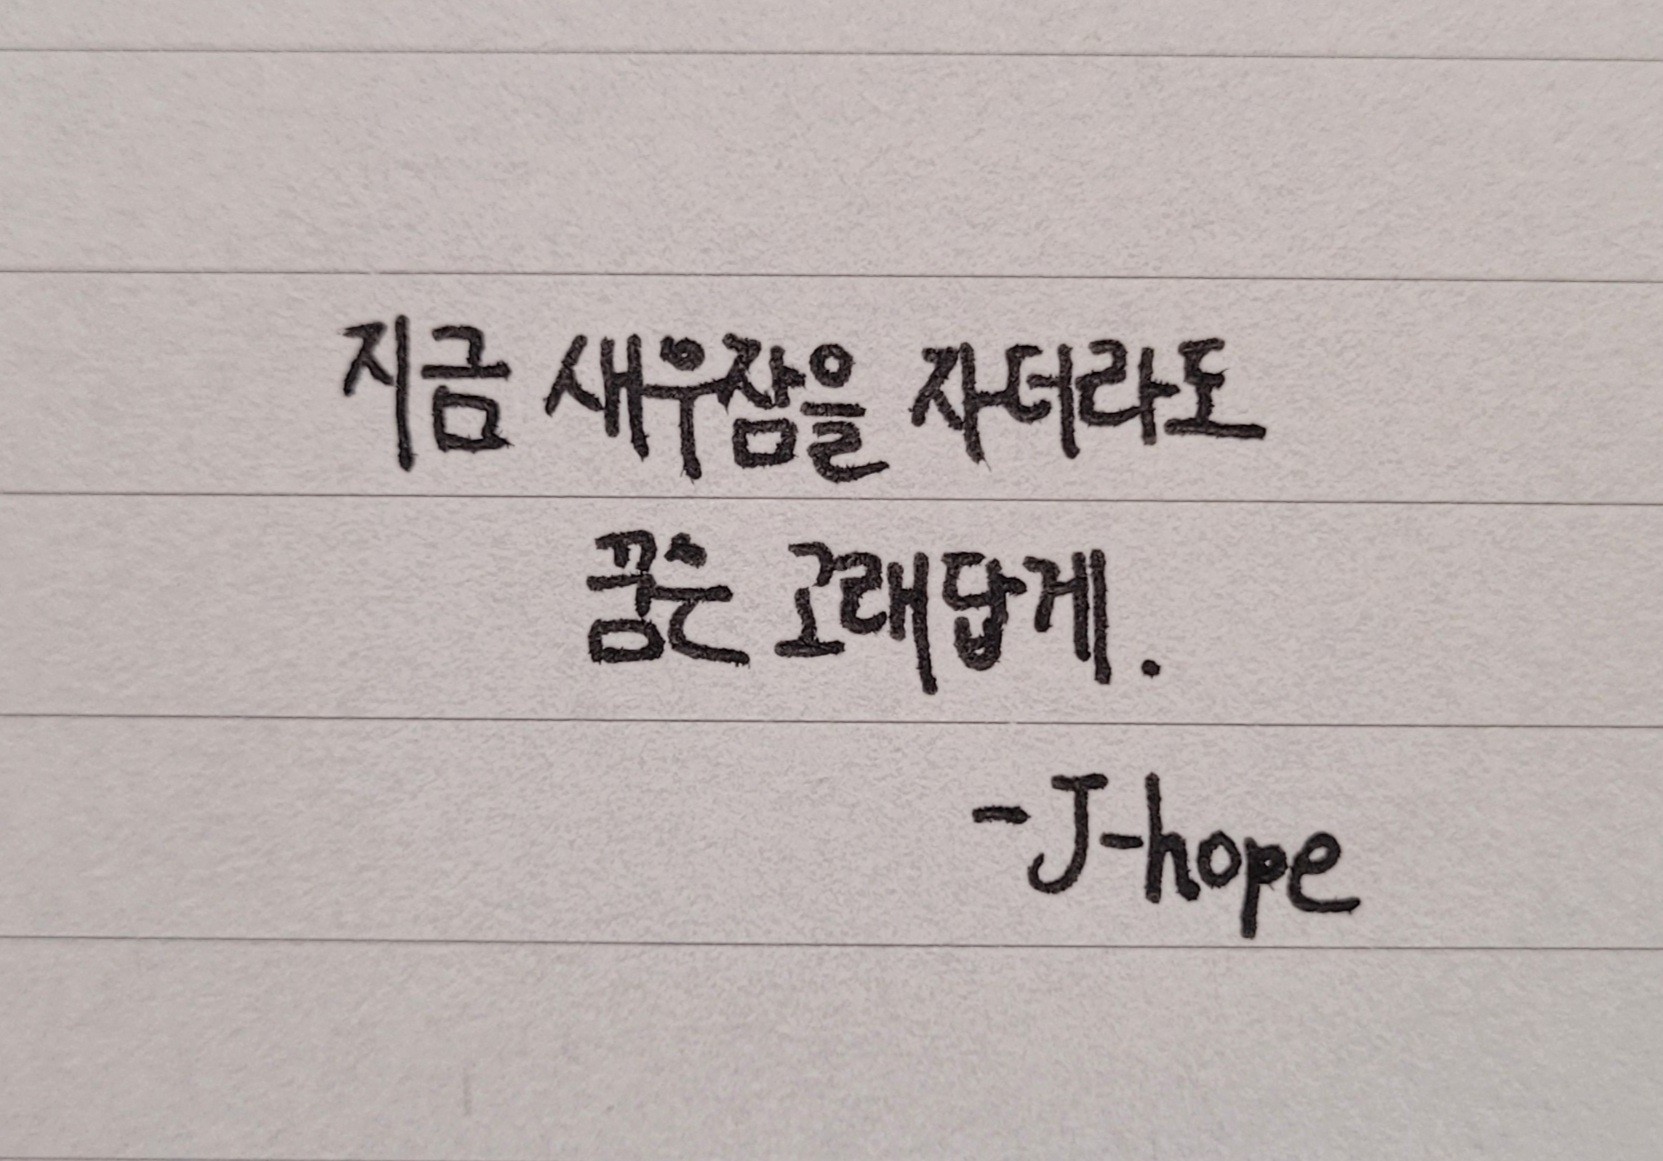 지금 새우잠을 자더라도
꿈은 고래답게.
-J-hope